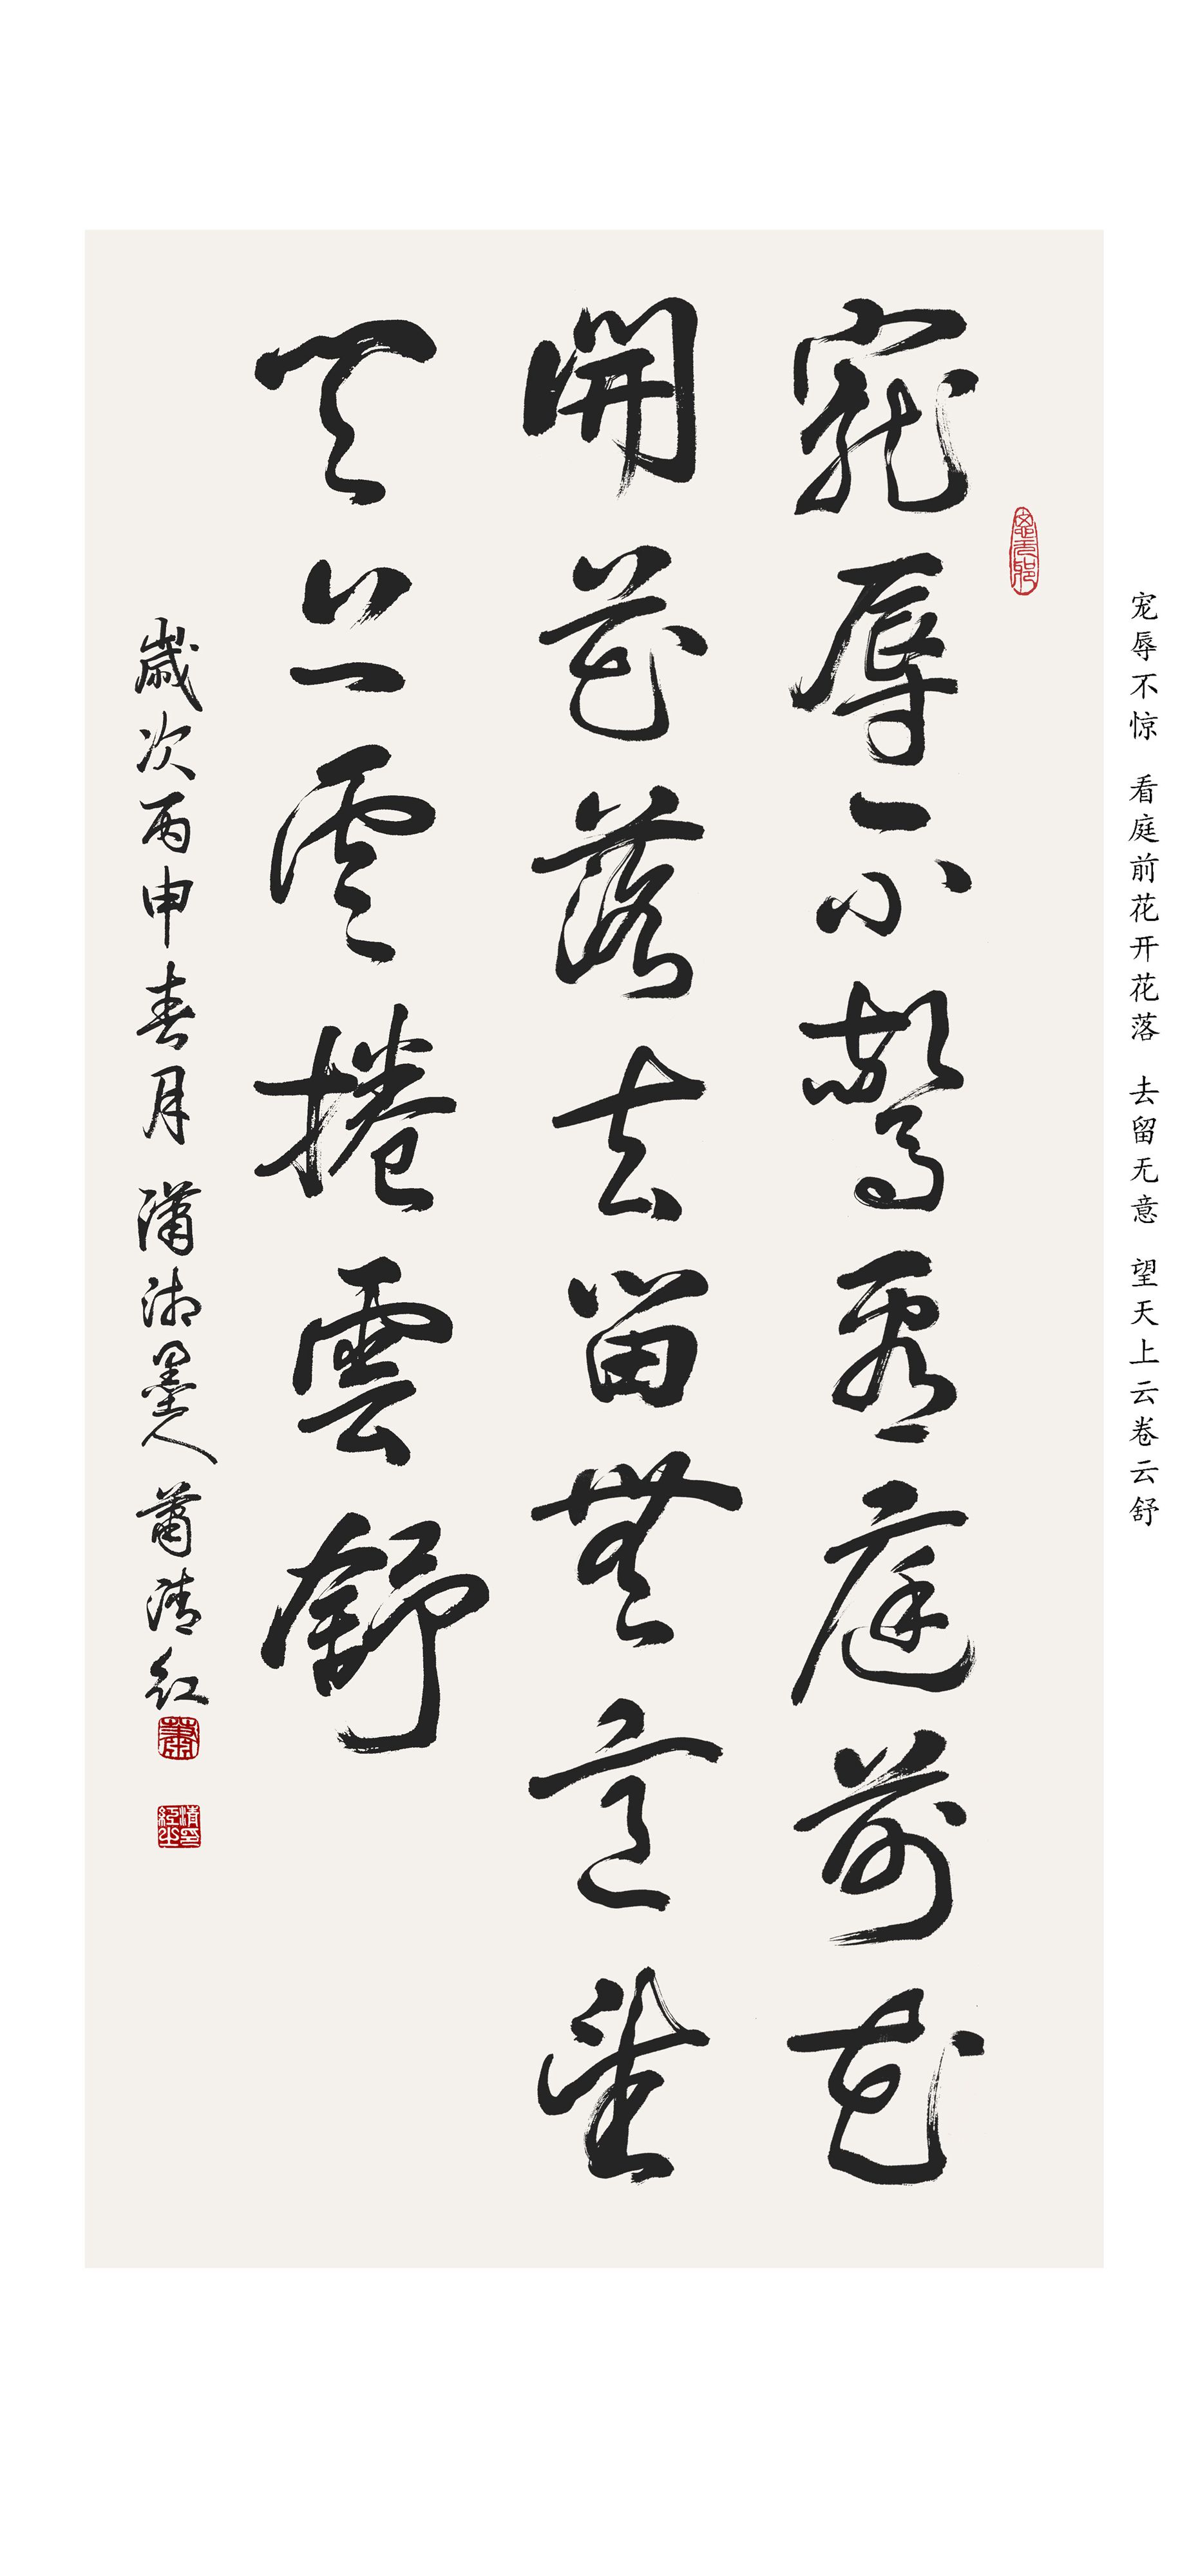 宠辱不惊 看庭前花开花落 去留无意 望天上云卷云舒
寵辱不驚看庭前花
開花落去留無意望
天上雲捲雲舒
歲次丙申春月 瀟湘墨人蕭清紅
蕭
清紅之印